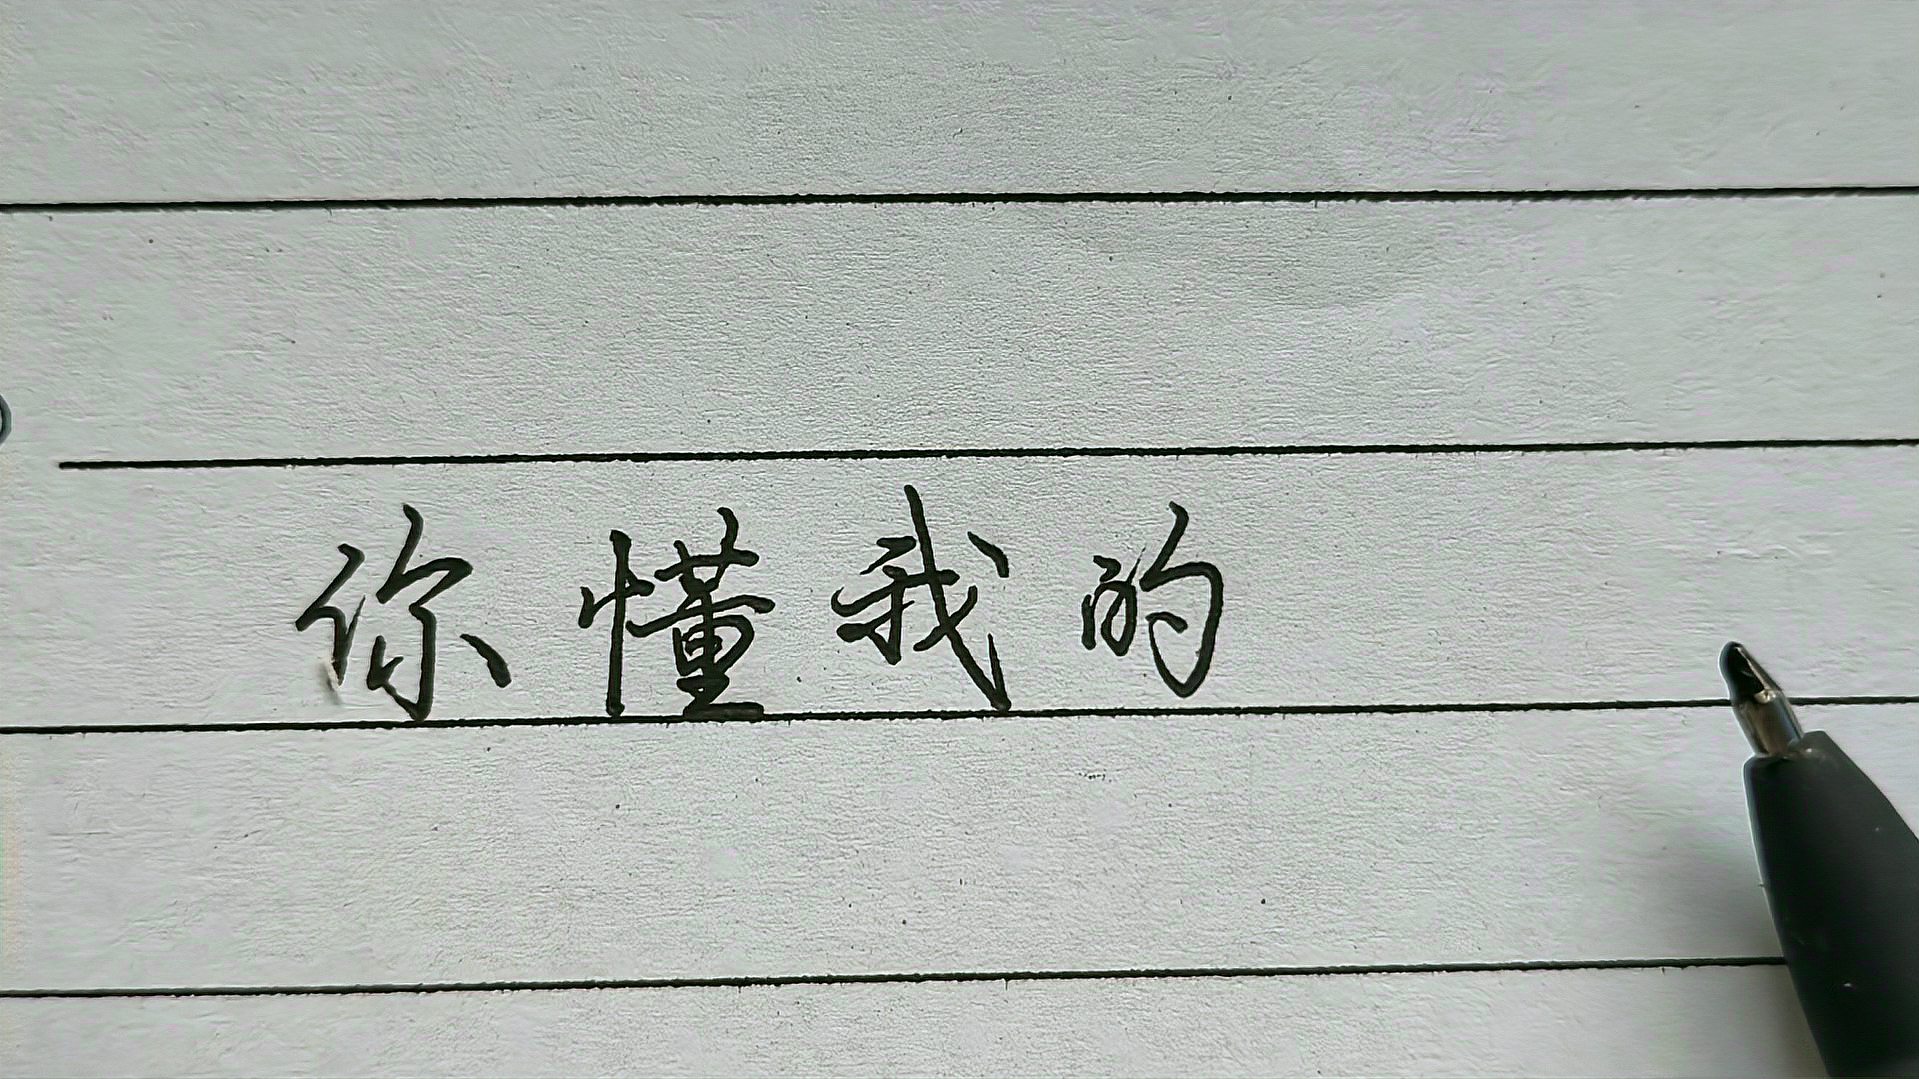 你懂我的